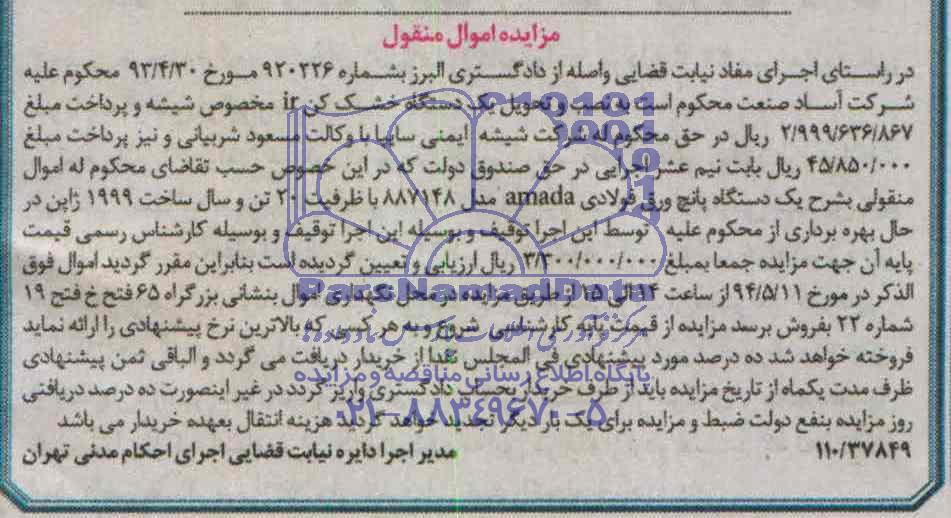 مزایده اموال منقول
در راستای اجرای مفاد نیابت قضایی واصله از دادگستری البرز بشماره ۹۲۰۲۲۶ مورخ ۹۳/۴/۳۰ محکوم علیه
شرکت آساد صنعت محکوم است به نصب و تحویل یک دستگاه خشک کن ir مخصوص شیشه و پرداخت مبلغ
۲/۹۹۹/۶۳۶/۸۶۷ ریال در حق محکوم له شرکت شیشه ایمنی سایپا با وکالت مسعود شربیانی و نیز پرداخت مبلغ
۴۵/۸۵۰/۰۰۰ ریال بابت نیم عشر اجرایی در حق صندوق دولت که در این خصوص حسب تقاضای محکوم له اموال
منقولی بشرح یک دستگاه پانچ ورق فولادی amada مدل ۸۸۷۱۴۸ با ظرفیت ۲۰ تن و سال ساخت ۱۹۹۹ ژاپن در
حال بهره برداری از محکوم علیه توسط این اجرا توقیف و بوسیله این اجرا توقیف و بوسیله کارشناس رسمی قیمت
پایه آن جهت مزایده جمعا بمبلغ ۳/۳۰۰/۰۰۰/۰۰۰ ریال ارزیابی و تعیین گردیده است بنابراین مقرر گردید اموال فوق
الذکر در مورخ ۹۴/۵/۱۱ از ساعت ۱۴ الی ۱۵ از طریق مزایده در محل نگهداری اموال بنشانی بزرگراه ۶۵ فتح خ فتح ۱۹
شماره ۲۲ بفروش برسد مزایده از قیمت پایه کارشناسی شروع و به هر کسی که بالاترین نرخ پیشنهادی را ارائه نماید
فروخته خواهد شد ده درصد مورد پیشنهادی فی المجلس نقدا از خریدار دریافت می گردد و الباقی ثمن پیشنهادی
ظرف مدت یکماه از تاریخ مزایده باید از طرف خریدار بحساب دادگستری واریز گردد در غیر اینصورت ده درصد دریافتی
روز مزایده بنفع دولت ضبط و مزایده برای یک بار دیگر تجدید خواهد گردید هزینه انتقال بعهده خریدار می باشد
۱۱۰/۳۷۸۴۹ مدیر اجرا دایره نیابت قضایی اجرای احکام مدنی تهران
ParsNamadData
پایگاه اطلاع رسانی مناقصه و مزایده
۰۲۱-۸۸۳۴۹۶۷۰-۵